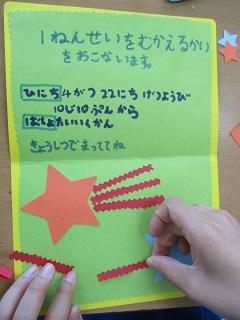 1ねんせいをむかえるかい
をおこないます。
ひにち 4がつ22にち げつようび
10じ10ぷんから
ばしょ たいいくかん
きょうしつでまっててね